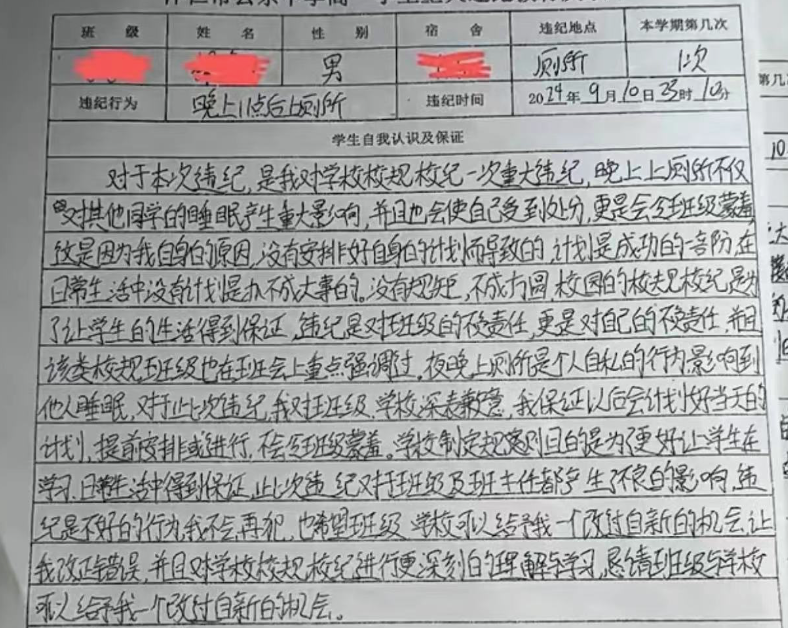 班 级 姓 名 性 别 宿 舍 违纪地点 本学期第几次
男 厕所 1次
违纪行为 晚上11点后上厕所 违纪时间 2024年9月10日23时10分
第几
10.
学生自我认识及保证
对于本次违纪,是我对学校校规校纪一次重大违纪,晚上上厕所不仅
对其他同学的睡眠产生重大影响,并且也会使自己受到处分,更是会令班级蒙羞
这是因为我自身的原因,没有安排好自身的计划而导致的,计划是成功的一部分,在
日常生活中没有计划是办不成大事的。没有规矩,不成方圆,校园的校规校纪是为
了让学生的生活得到保证,违纪是对班级的不负责任,更是对自己的不负责任,并且
该类校规班级也在班会上重点强调过,夜晚上厕所是个人自私的行为影响到
他人睡眠,对于此次违纪,我对班级、学校深表歉意,我保证以后会计划好当天的
计划,提前安排或进行,不会令班级蒙羞。学校制定规章则目的是为了更好让学生在
学习、日常生活中得到保证,此次违纪对于班级及班主任都产生了不良的影响,违
纪是不好的行为,我不会再犯,也希望班级、学校可以给予我一个改过自新的机会,让
我改正错误,并且对学校校规、校纪进行更深刻的理解与学习,恳请班级与学校
可以给予我一个改过自新的机会。